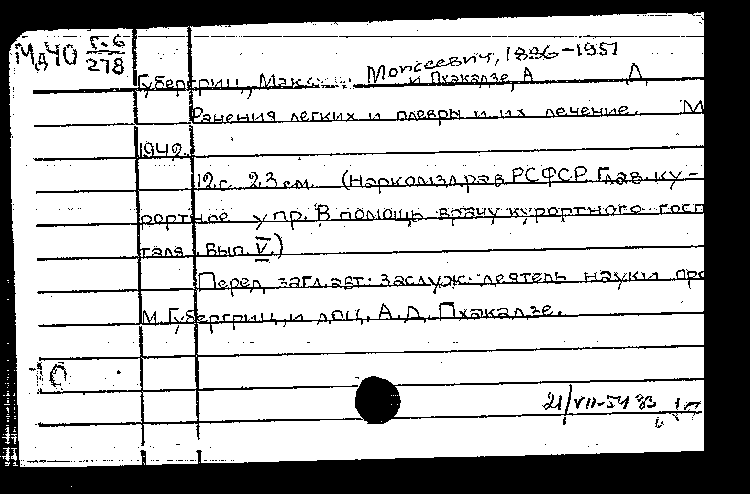 МдЧ0 Г-6
278
Моисеевич, 1886-1951
Губергриц, Максим и Пхакадзе, А Д
Ранения легких и плевры и их лечение. М
1942.
12 с. 23 см. (Наркомздрав РСФСР. Глав. ку-
рортное упр. В помощь врачу курортного госп
таля. Вып. V.)
Перед загл. авт. заслуж. деятель науки про
М. Губергриц и доц. А. Д. Пхакадзе.
10
21/VII-54